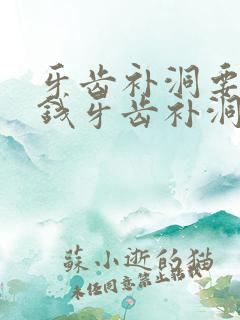 牙齿补洞要
钱牙齿补洞
蘇小逝的猫
未经同意禁止转载